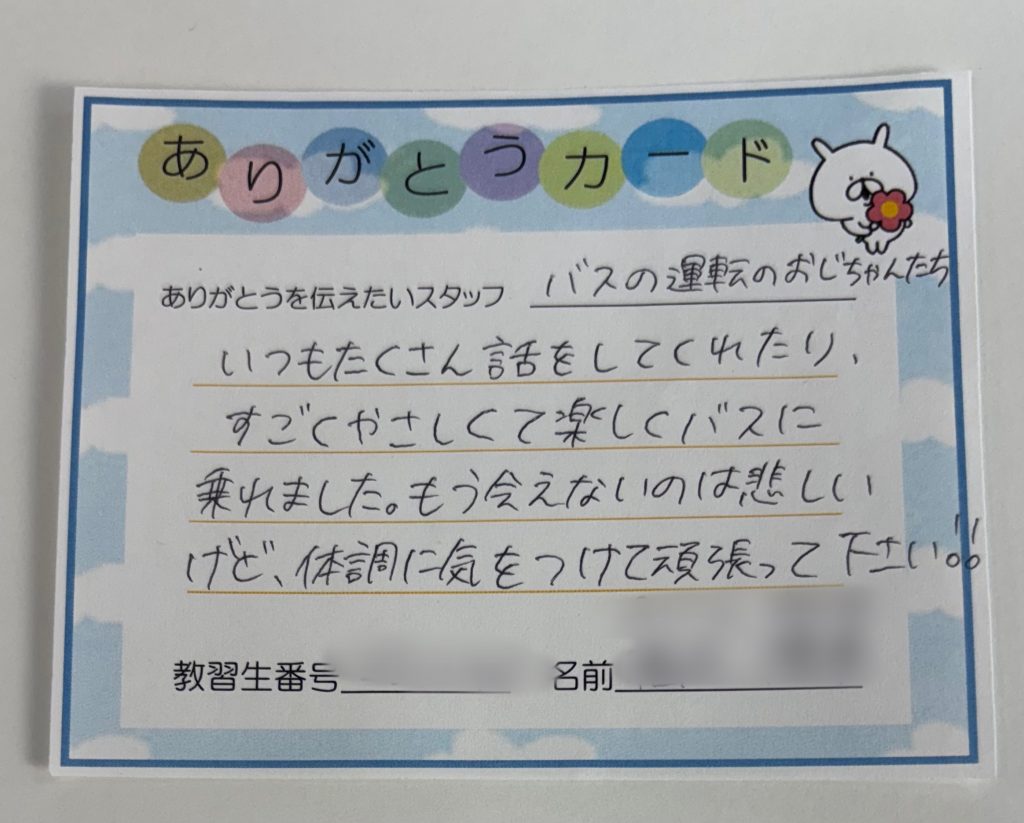 ありがとうカード
ありがとうを伝えたいスタッフ バスの運転のおじちゃんたち
いつもたくさん話をしてくれたり、
すごくやさしくて楽しくバスに
乗れました。もう会えないのは悲しい
けど、体調に気をつけて頑張って下さい!!
教習生番号 名前